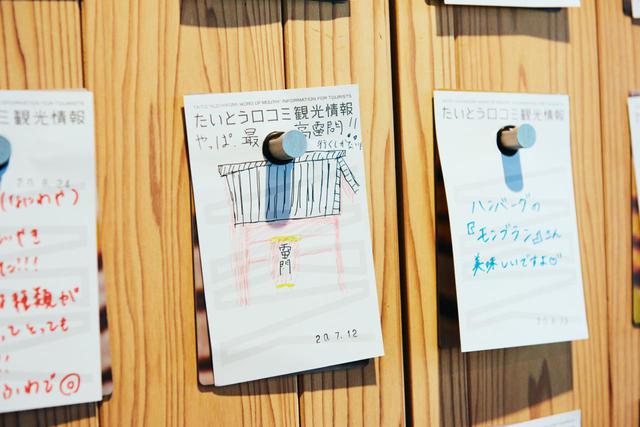 ミ観光情報
20.8.24
(なにわや)
いやき
!!!
種類が
ってとっても
!!
ふわで◎
TAITO "KUCHIKOMI (WORD OF MOUTH)" INFORMATION FOR TOURISTS
たいとう口コミ観光情報
やっぱ.最 高雷門!!
行くしかない!!
雷門
20.7.12
たいとう口コミ観光情報
ハンバーグの
『モンブラン』さん
美味しいですよ